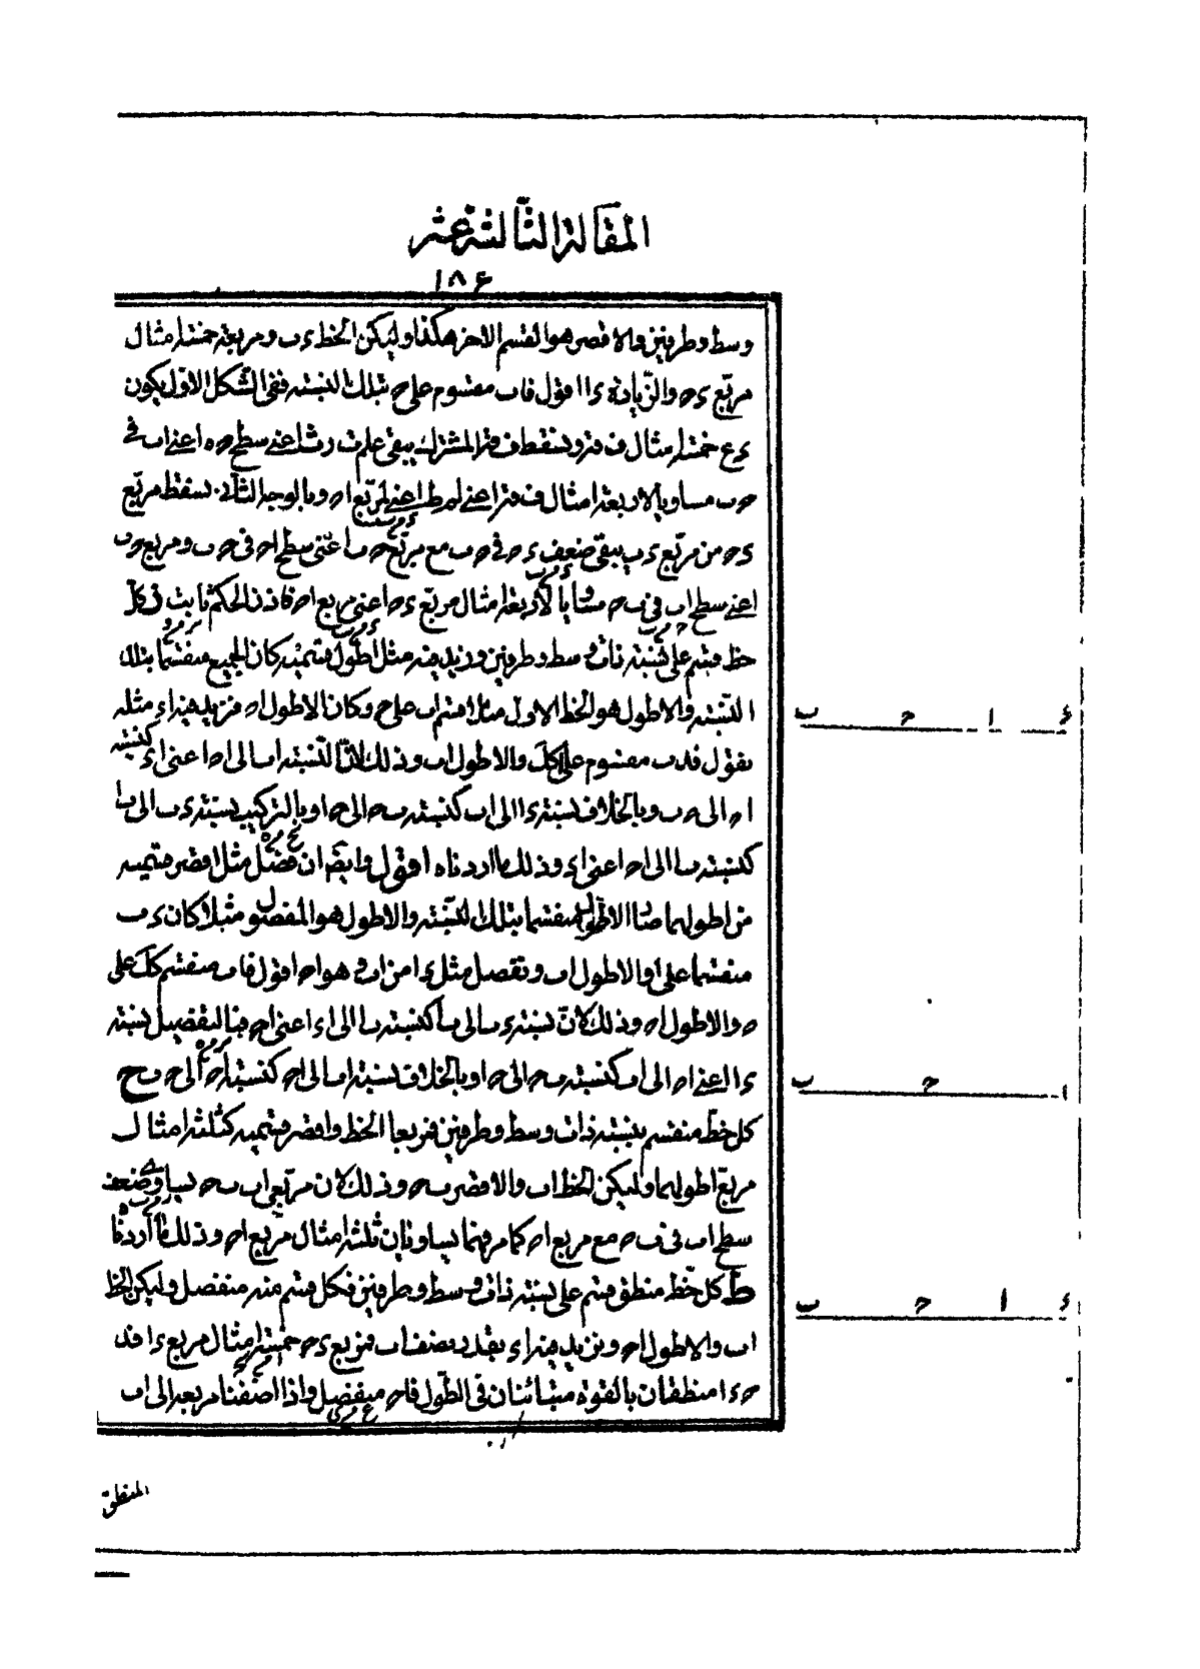 المقالة الثالثة عشر
١٨٦
وسط وطرفين والاقصر هو القسم الآخر هكذا وليكن الخط ء ب ومربعه خمسة امثال
مربع ء ح والزيادة ء ا اقول فا ب مقسوم على ح بتلك النسبة ففي الشكل الاول يكون
ء ع خمسة امثال ف تر ويسقط ف تر المشترك يبقى علم اعني سطح ح ه اعني ا ب في
ح ب مساويا لاربعة امثال ف تر اعني لمربع ا ح وبالوجه الثاني نسقط مربع
ء ح من مربع ء ب يبقى ضعف ء ح في ح ب مع مربع ح ب اعني سطح ا ح في ح ب ومربع ح ب
اعني سطح ا ب في ب ح مساويا لاربعة امثال مربع ء ا اعني مربع ا ح فاذن الحكم ثابت ز كل
خط قسم على نسبة ذات وسط وطرفين وزيد فيه مثل اطول قسميه كان الجميع منقسما بتلك
النسبة والاطول هو الخط الاول مثلا قسم ا ب على ح وكان الاطول ا ح فنزيد فيه ا ء مثله
نقول فء ب مقسوم على ا كك والاطول ا ب وذلك لان نسبة ا ب الى ا ح اعني ا ء كنسبة
ا ح الى ح ب وبالخلاف نسبة ء ا الى ا ب كنسبة ب ح الى ح ا وبالتركيب نسبة ء ب الى ب ا
كنسبة ب ا الى ا ح اعني ا ء وذلك ما اردناه اقول وايضا ان فصل مثل اقصر قسميه
من اطولهما صار الاطول منقسما بتلك النسبة والاطول هو المفصول مثلا كان ء ب
منقسما على ا والاطول ا ب ونفصل مثل ء ا من ا ب وهو ا ح اقول فا ب منقسم كك على
ح والاطول ا ح وذلك لان نسبة ء ب الى ب ا كنسبة ب ا الى ا ء اعني ا ح فبالتفصيل نسبة
ء ا اعني ا ح الى ا ب كنسبة ب ح الى ح ا وبالخلاف نسبة ا ب الى ا ح كنسبة ا ح الى ح ب ح
كل خط منقسم بنسبة ذات وسط وطرفين فمربعا الخط واقصر قسميه كثلثة امثال
مربع اطولهما وليكن الخط ا ب والاقصر ب ح وذلك لان مربعي ا ب ب ح يساوي ضعف
سطح ا ب في ب ح مع مربع ا ح كما مر فهما يساويان ثلثة امثال مربع ا ح وذلك ما اردنا
ط كل خط منطق قسم على نسبة ذات وسط وطرفين فكل قسم منه منفصل وليكن الخط
ا ب والاطول ا ح ونزيد فيه ا ء بقدر نصف ا ب فمربع ء ح خمسة امثال مربع ء ا فء
ح ء ا منطقان بالقوة متبائنان في الطول فا ح منفصل واذا اضفنا مربعه الى ا ب
المنطق
ء ا ح ب
ا ح ب
ء ا ح ب